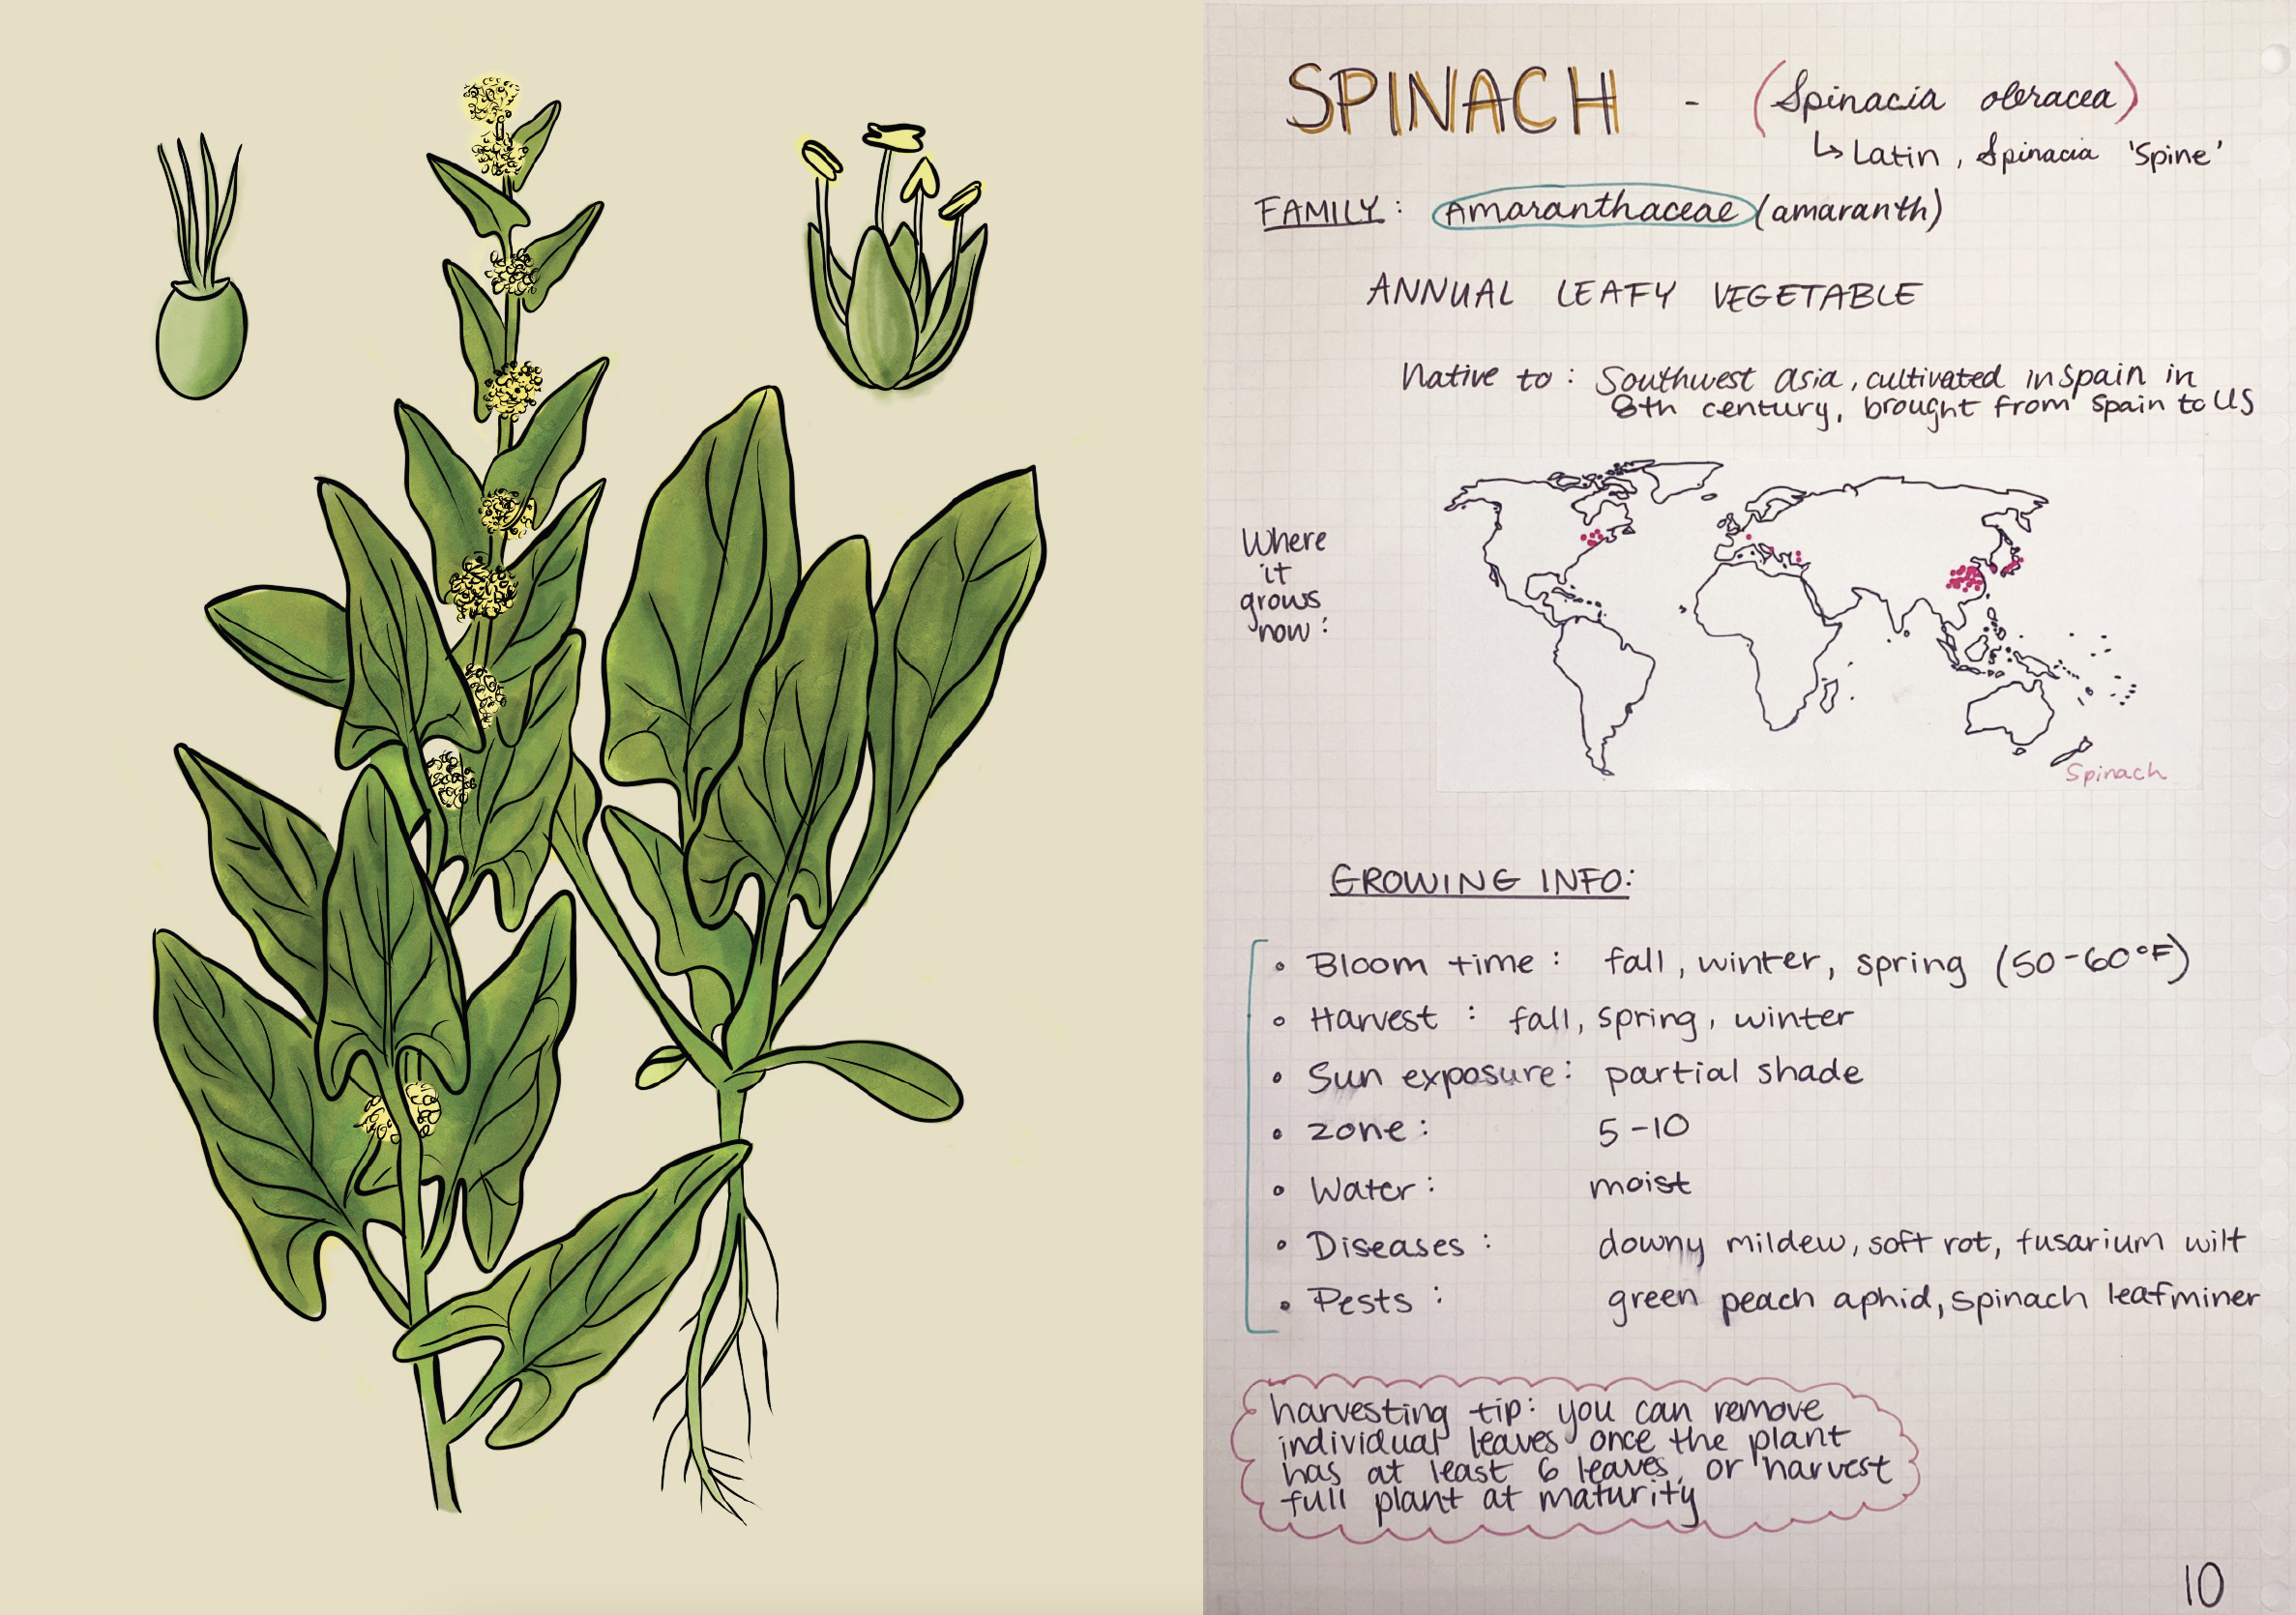 SPINACH - (Spinacia oleracea)
↳ Latin, Spinacia 'Spine'
FAMILY: Amaranthaceae (amaranth)
ANNUAL LEAFY VEGETABLE
Native to: Southwest Asia, cultivated in Spain in
8th century, brought from Spain to US
Where
it
grows
now:
Spinach
GROWING INFO:
• Bloom time: fall, winter, spring (50-60°F)
• Harvest: fall, spring, winter
• Sun exposure: partial shade
• zone: 5-10
• Water: moist
• Diseases: downy mildew, soft rot, fusarium wilt
• Pests: green peach aphid, spinach leafminer
harvesting tip: you can remove
individual leaves once the plant
has at least 6 leaves, or harvest
full plant at maturity
10